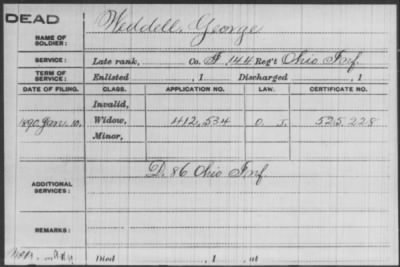 DEAD
NAME OF SOLDIER: Weddell, George
SERVICE: Late rank, Co. F, 144 Reg't Ohio Inf.
TERM OF SERVICE: Enlisted , 1 Discharged , 1
DATE OF FILING. CLASS. APPLICATION NO. LAW. CERTIFICATE NO.
Invalid,
1890 Jan. 10. Widow, 412,534 O. S. 525.228
Minor,
ADDITIONAL SERVICES: D. 86 Ohio Inf
REMARKS:
Died , 1 , at